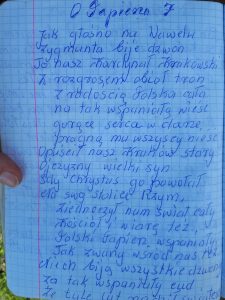 O Papieżu 7
Jak głośno na Wawelu
Zygmunta bije dzwon
To nasz Kardynał Krakowski
Z rozgłosem objął tron
Z radością Polska cała
na tak wspaniałą wieść
gorące serca w darze
pragną mu wszyscy nieść
Opuścił nasz Kraków stary
Ojczyzny wielki syn
Gdy Chrystus go powołał
na swą stolicę Rzym,
Zjednoczył nam świat cały
Kościół i wiarę też,
Polski Papież, wspaniały
Jak zwany wśród nas też
Niech biją wszystkie dzwony
za tak wspaniały cud
Że tyle lat